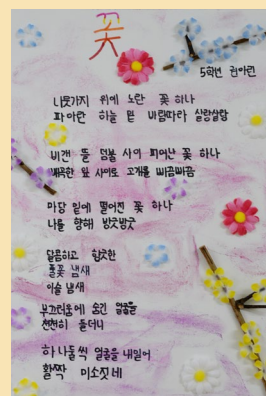 꽃
5학년 권아린
나뭇가지 위에 노란 꽃 하나
파아란 하늘 밑 바람따라 살랑살랑
비갠 뜰 덤불 사이 피어난 꽃 하나
빼곡한 잎 사이로 고개를 빼꼼빼꼼
마당 밑에 떨어진 꽃 하나
나를 향해 방긋방긋
달콤하고 향긋한
풀꽃 냄새
이슬 냄새
부끄러움에 숨긴 얼굴을
천천히 들더니
하나둘씩 얼굴을 내밀어
활짝 미소짓네